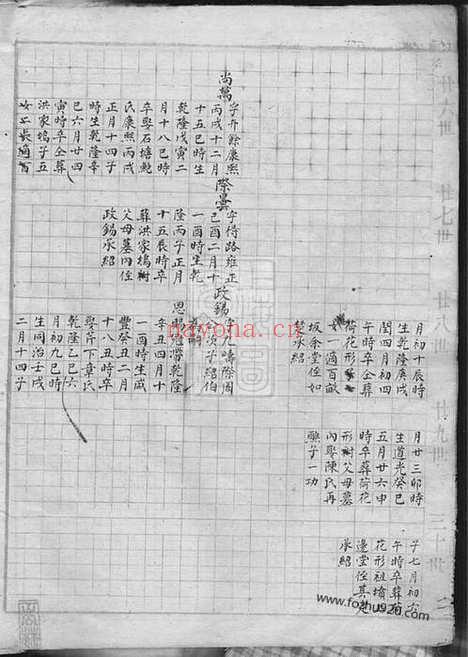 廿六世
廿七世
廿九世
三十世
月初十辰時
生乾隆庚戌
閏四月初四
午時卒仝葬
荷花形
女一適百畝
坂余堂侄如
承紹
月廿三卯時
生道光癸巳
五月廿六申
時卒葬荷花
形樹父母墓
內娶陳氏再
醮子一功
子七月初六
午時卒葬荷
花形祖墳
邊堂侄其
承紹
尚萬
字升餘康熙
丙戌十二月
十五巳時生
乾隆戊寅二
月十八巳時
卒娶石塘鮑
氏康熙丙戌
正月十四子
時生乾隆辛
巳六月廿四
寅時卒仝葬
洪家塢子五
女二長適百
際曇
字得路雍正
己酉二月十
一酉時生乾
隆丙子正月
十五辰時卒
葬洪家塢樹
父母墓內侄
政錫承紹
政錫
字九疇際周
次子紹伯
恩
潛乾隆
辛丑四月十
一酉時生咸
豐癸丑二月
十八丑時卒
娶芹下章氏
乾隆乙巳六
月初九巳時
生同治壬戌
二月十四子
美帝居士
READHU.COM
www.foshu920.com